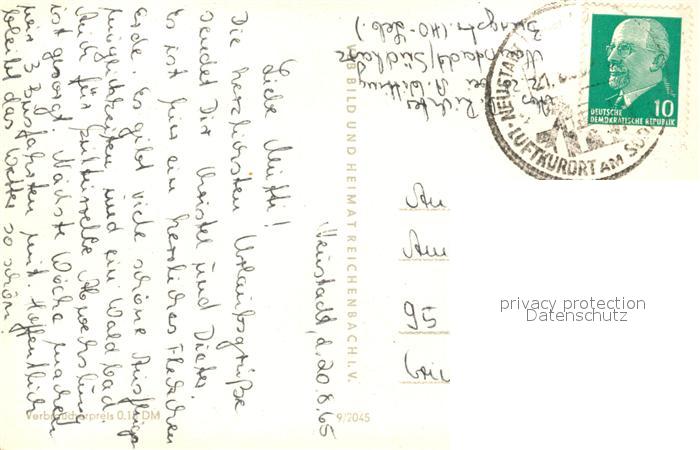 Neustadt, d. 20.8.65
Liebe Mutti!
Die herzlichsten Urlaubsgrüße
sendet Dir Christel und Dieter.
Es ist hier ein herrliches Fleckchen
Erde. Es gibt viele schöne Ausflugs
möglichkeiten und ein Waldbad.
Auch für kulturelle Abwechslung
ist gesorgt. Nächste Woche machen
wir 3 Busfahrten mit. Hoffentlich
bleibt das Wetter so schön!
Abs.
Richter
Neustadt/Südharz
Burgstr. (HO-Geb.)
VEB BILD UND HEIMAT REICHENBACH I. V.
9/2045
Verbraucherpreis 0.1 DM
NEUSTADT
LUFTKURORT AM SÜ
10
DEUTSCHE
DEMOKRATISCHE REPUBLIK
An
95
privacy protection
Datenschutz